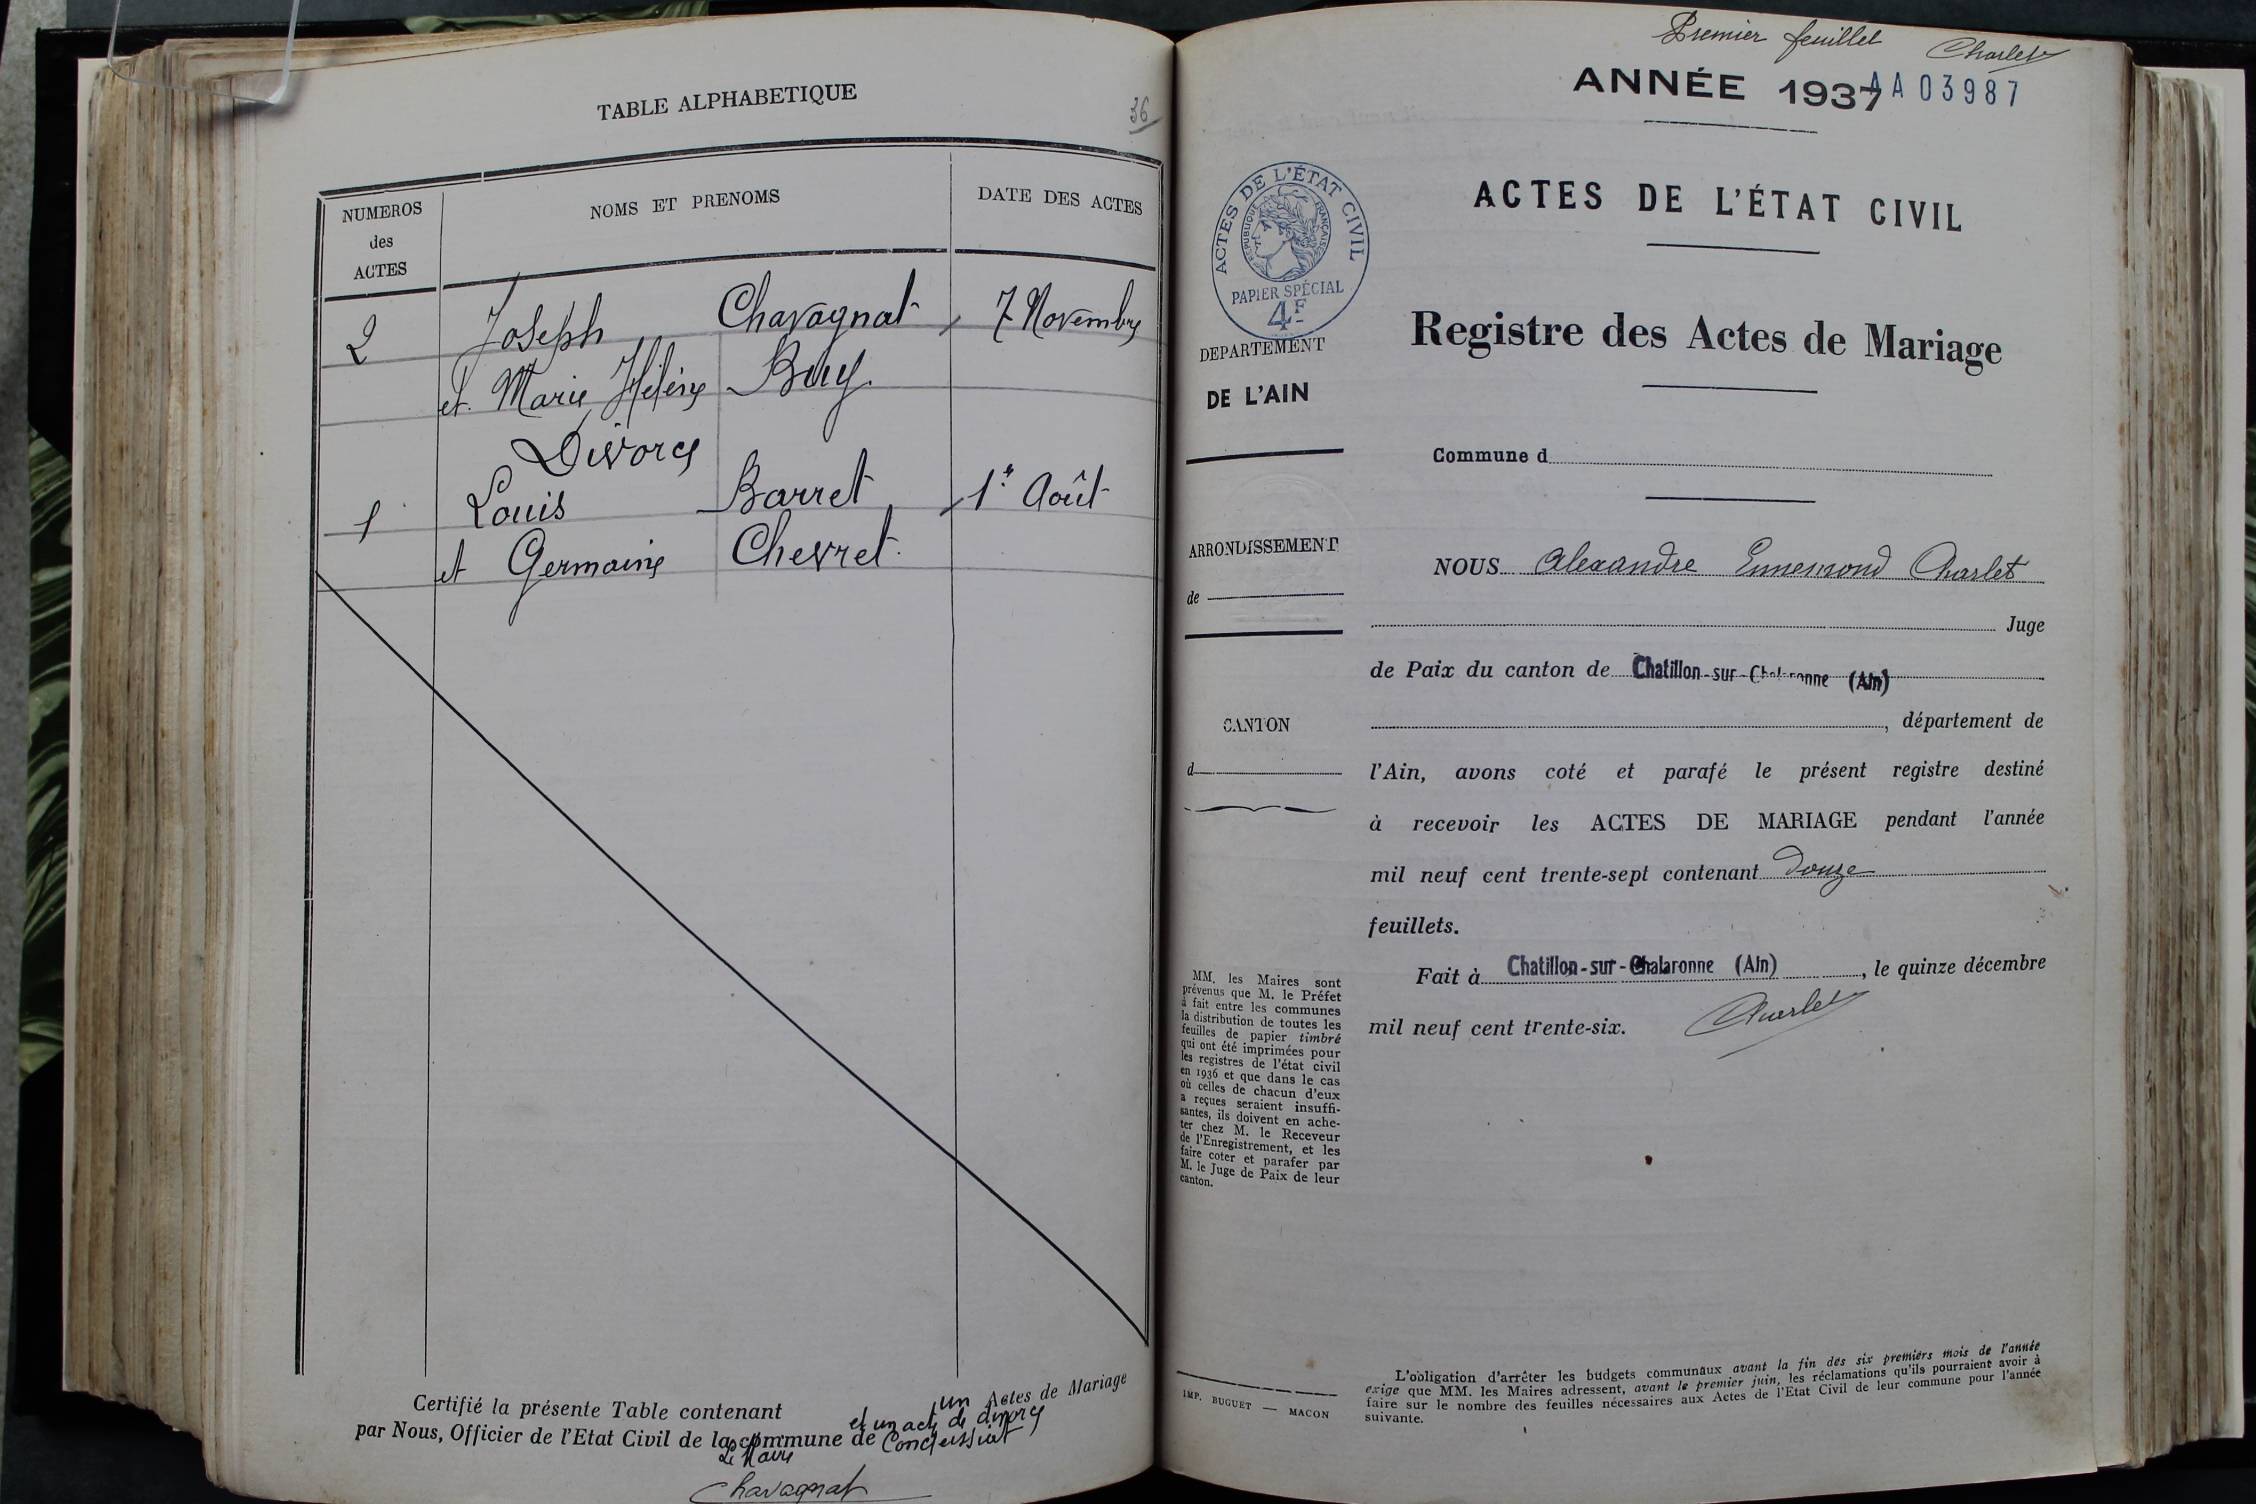 TABLE ALPHABETIQUE
36
NUMEROS
des
ACTES
NOMS ET PRENOMS
DATE DES ACTES
2 Joseph Chavagnat 7 Novembre
et Marie Hélène Buy.
Divorce
1 Louis Barret 1er Août
et Germaine Chevret
Certifié la présente Table contenant un Actes de Mariage
et un acte de divorce
par Nous, Officier de l'Etat Civil de la commune de Condeissiat
Le Maire
Chavagnat
Premier feuillet Charlet
ANNÉE 1937
AA 03987
ACTES DE L'ÉTAT CIVIL
RÉPUBLIQUE FRANÇAISE
PAPIER SPÉCIAL
4F
DEPARTEMENT
DE L'AIN
ARRONDISSEMENT
de
CANTON
d
MM. les Maires sont
prévenus que M. le Préfet
a fait entre les communes
la distribution de toutes les
feuilles de papier timbré
qui ont été imprimées pour
les registres de l'état civil
en 1936 et que dans le cas
où celles de chacun d'eux
a reçues seraient insuffi-
santes, ils doivent en ache-
ter chez M. le Receveur
de l'Enregistrement, et les
faire coter et parafer par
M. le Juge de Paix de leur
canton.
IMP. BUGUET — MACON
ACTES DE L'ÉTAT CIVIL
Registre des Actes de Mariage
Commune d
NOUS Alexandre Ennemond Charlet
Juge
de Paix du canton de Chatillon-sur-Chalaronne (Ain)
, département de
l'Ain, avons coté et parafé le présent registre destiné
à recevoir les ACTES DE MARIAGE pendant l'année
mil neuf cent trente-sept contenant douze
feuillets.
Fait à Chatillon-sur-Chalaronne (Ain), le quinze décembre
mil neuf cent trente-six. Charlet
L'obligation d'arrêter les budgets communaux avant la fin des six premiers mois de l'année
exige que MM. les Maires adressent, avant le premier juin, les réclamations qu'ils pourraient avoir à
faire sur le nombre des feuilles nécessaires aux Actes de l'Etat Civil de leur commune pour l'année
suivante.